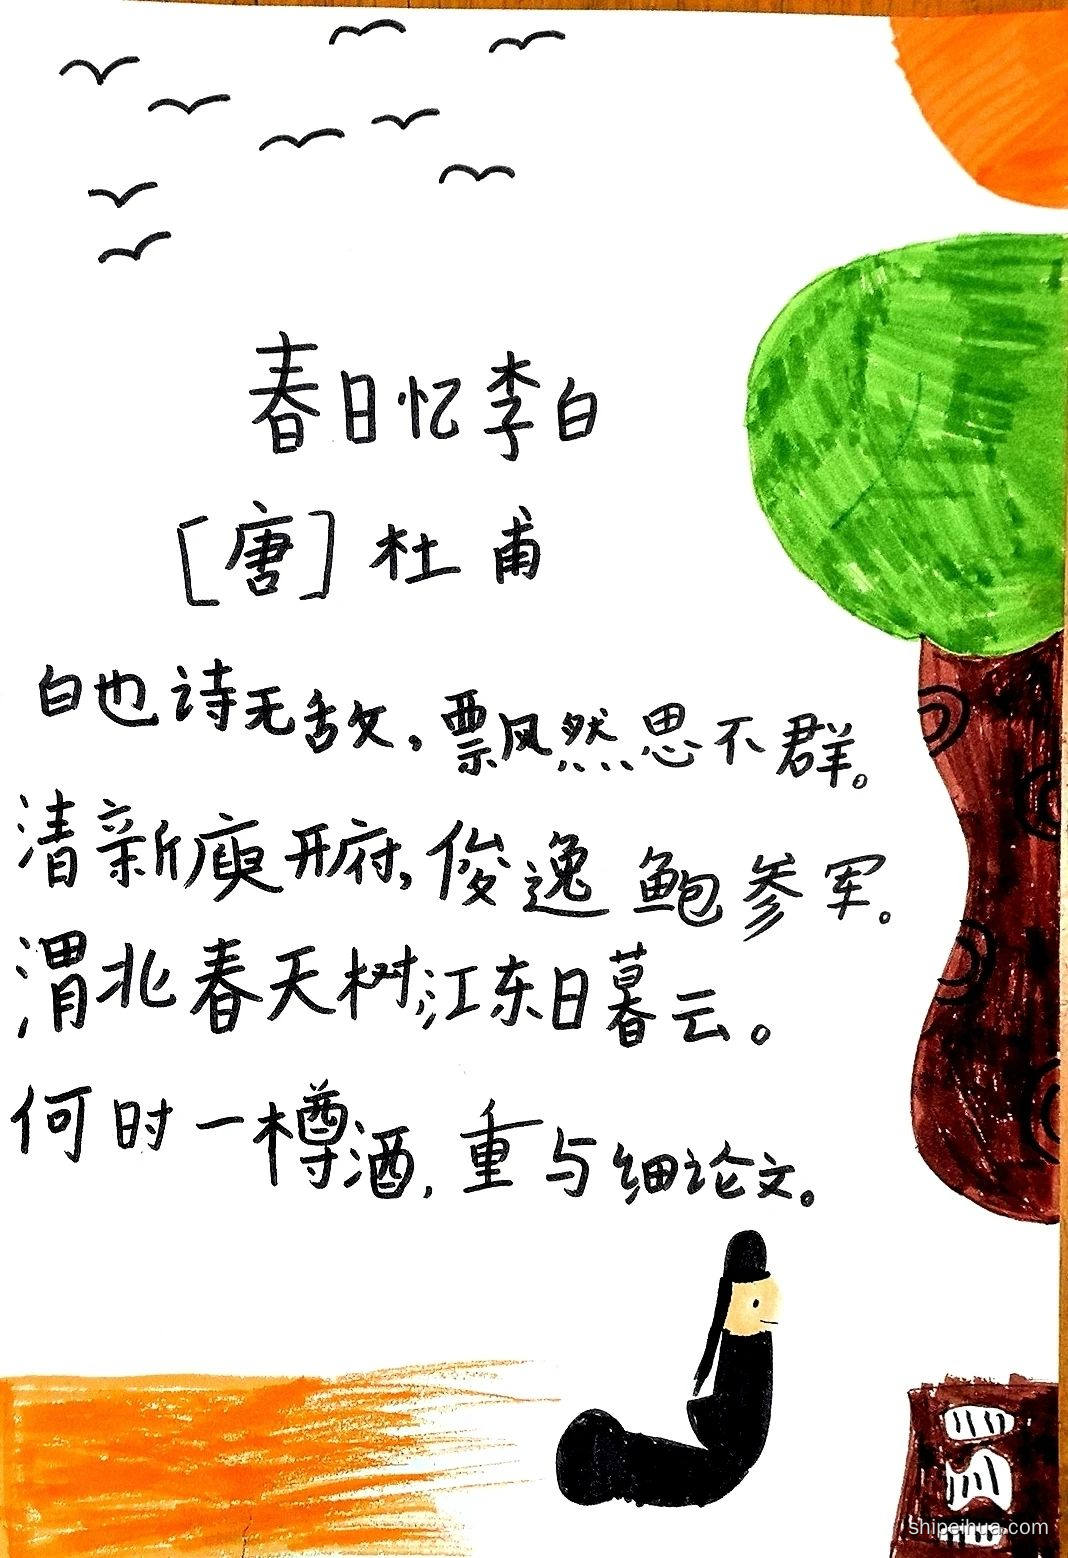 春日忆李白
[唐] 杜甫
白也诗无敌,飘然思不群。
清新庾开府,俊逸鲍参军。
渭北春天树,江东日暮云。
何时一樽酒,重与细论文。
shipeihua.com